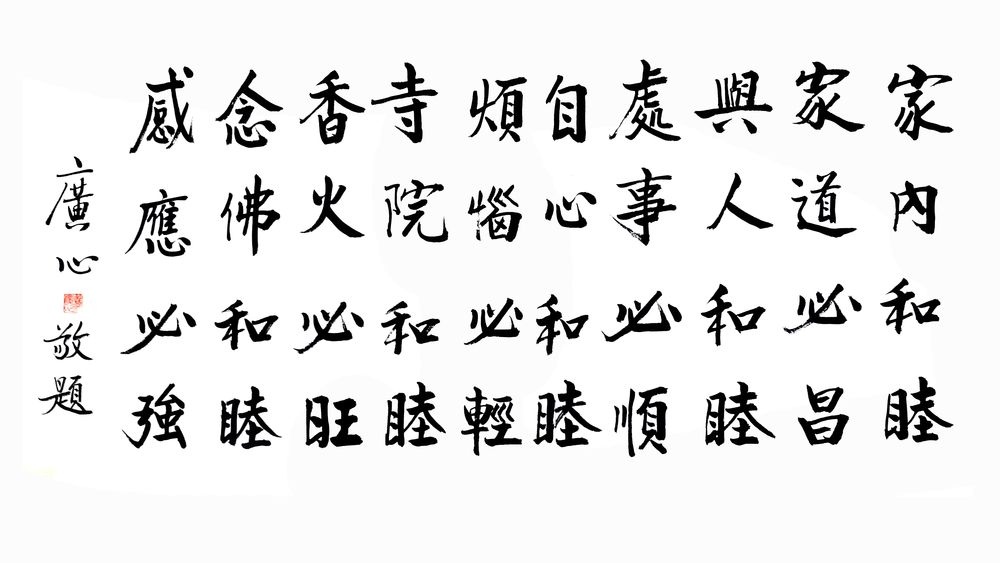 家內和睦
家道必昌
與人和睦
處事必順
自心和睦
煩惱必輕
寺院和睦
香火必旺
念佛和睦
感應必強
廣心敬題